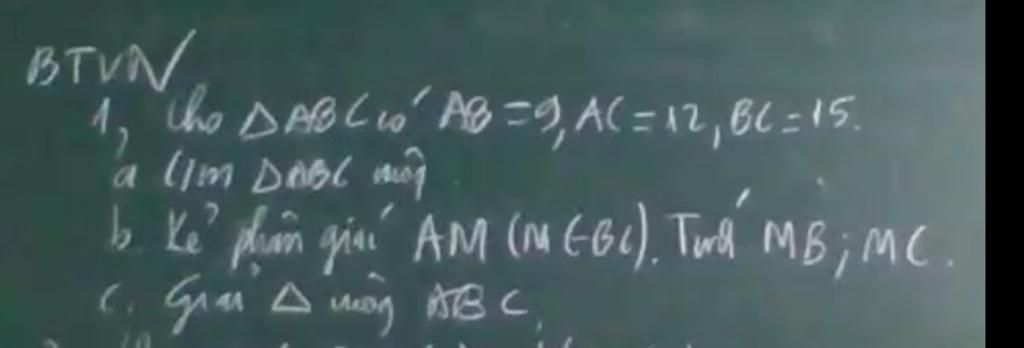 BTVN
1, Cho △ABC có AB = 9, AC = 12, BC = 15.
a C/m △ABC vuông
b. Kẻ phân giác AM (M ∈ BC). Tính MB; MC.
c. Giải △ vuông ABC.